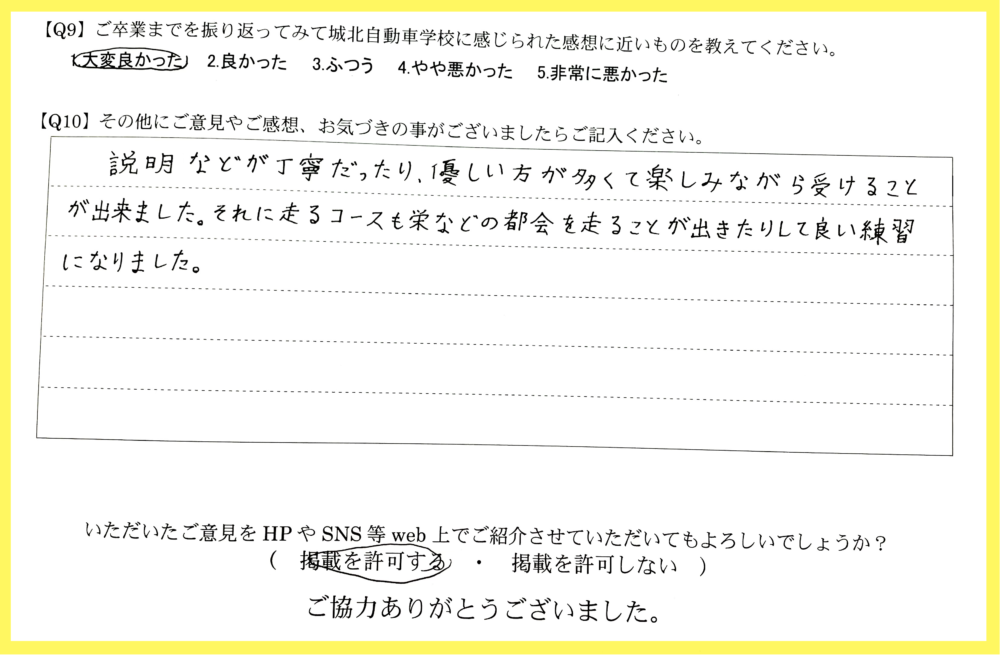 【Q9】ご卒業までを振り返ってみて城北自動車学校に感じられた感想に近いものを教えてください。
1.大変良かった 2.良かった 3.ふつう 4.やや悪かった 5.非常に悪かった
【Q10】その他にご意見やご感想、お気づきの事がございましたらご記入ください。
説明などが丁寧だったり、優しい方が多くて楽しみながら受けること
が出来ました。それに走るコースも栄などの都会を走ることが出きたりして良い練習
になりました。
いただいたご意見をHPやSNS等web上でご紹介させていただいてもよろしいでしょうか？
（ 掲載を許可する ・ 掲載を許可しない ）
ご協力ありがとうございました。